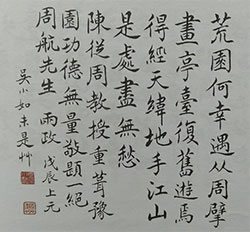 荒園何幸遇从周擘
畫一亭臺復舊遊焉
得經天緯地手江山
是處盡無愁
陳從周教授重葺豫
園功德無量敬題一絕
周航先生 雨政 戊辰上元
吴小如未是艸